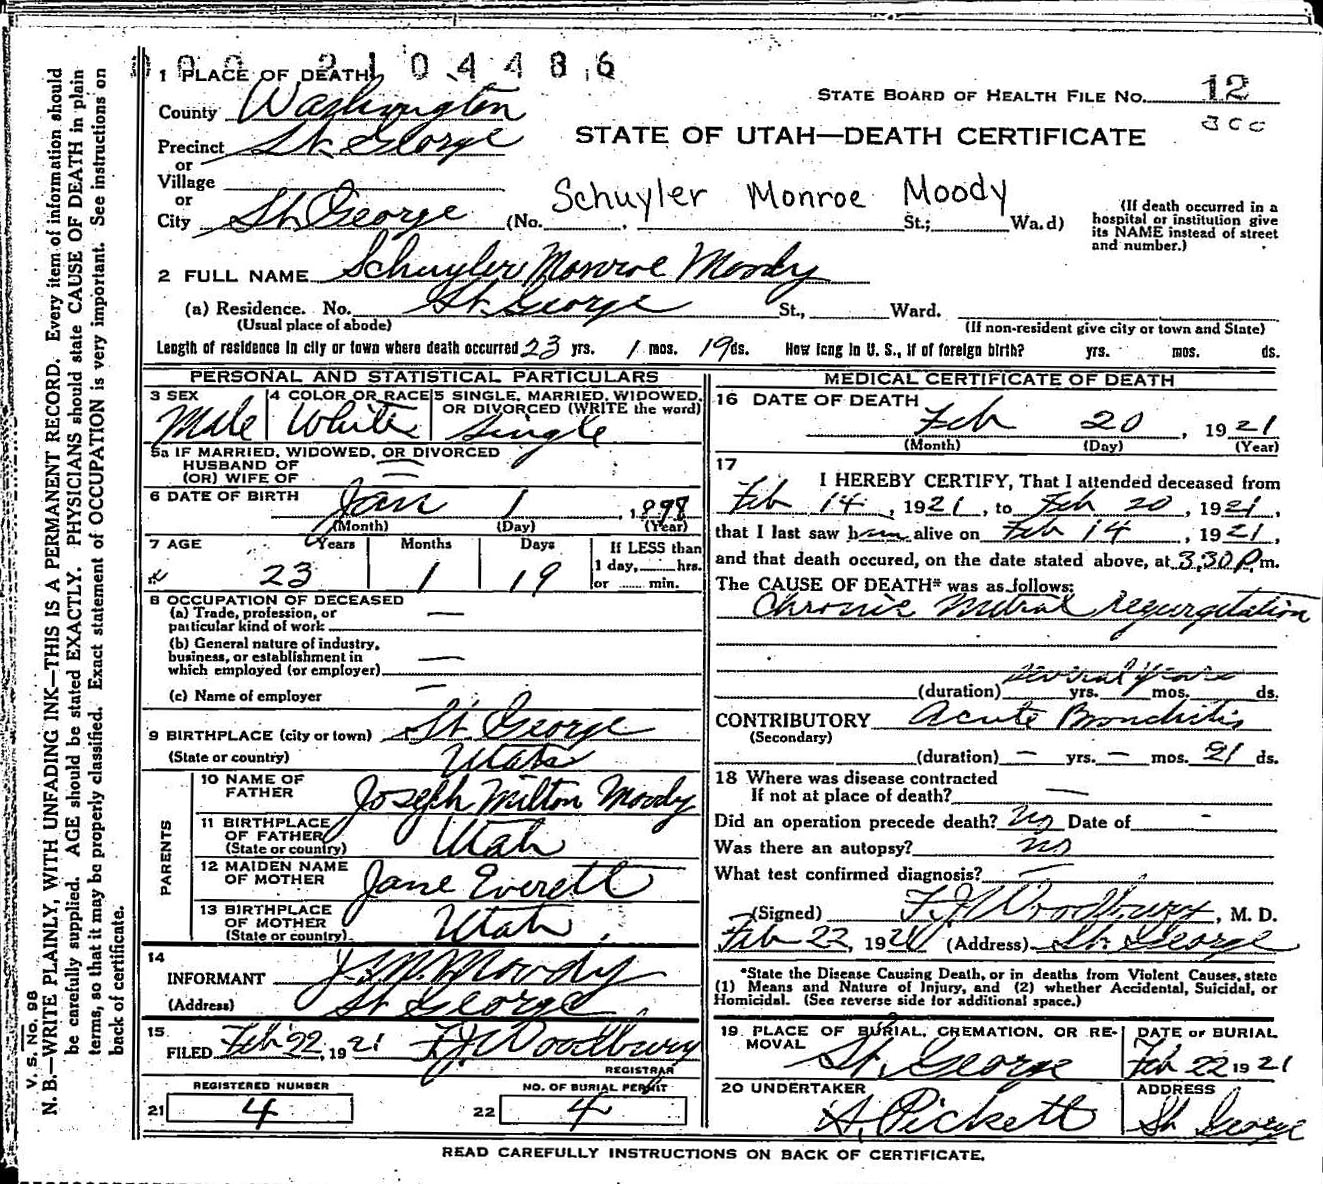 000 2104486
1 PLACE OF DEATH
County Washington
STATE BOARD OF HEALTH FILE NO. 12
300
Precinct St. George
STATE OF UTAH—DEATH CERTIFICATE
or
Village
or
Schuyler Monroe Moody
City St. George (No. , St.; Wa.d)
(If death occurred in a hospital or institution give its NAME instead of street and number.)
2 FULL NAME Schuyler Monroe Moody
(a) Residence. No. St. George St., Ward.
(Usual place of abode)
(If non-resident give city or town and State)
Length of residence in city or town where death occurred 23 yrs. 1 mos. 19 ds. How long in U. S., if of foreign birth? yrs. mos. ds.
PERSONAL AND STATISTICAL PARTICULARS
3 SEX Male
4 COLOR OR RACE White
5 SINGLE, MARRIED, WIDOWED, OR DIVORCED (WRITE the word) Single
5a IF MARRIED, WIDOWED, OR DIVORCED
HUSBAND OF
(OR) WIFE OF
6 DATE OF BIRTH Jan 1, 1898
(Month) (Day) (Year)
7 AGE Years Months Days
23 1 19
If LESS than
1 day, hrs.
or min.
8 OCCUPATION OF DECEASED
(a) Trade, profession, or
particular kind of work —
(b) General nature of industry,
business, or establishment in
which employed (or employer) —
(c) Name of employer —
9 BIRTHPLACE (city or town) St. George
(State or country) Utah
PARENTS
10 NAME OF FATHER Joseph Milton Moody
11 BIRTHPLACE OF FATHER (State or country) Utah
12 MAIDEN NAME OF MOTHER Jane Everett
13 BIRTHPLACE OF MOTHER (State or country) Utah
14
INFORMANT J. M. Moody
(Address) St George
15
FILED Feb 22, 1921 F. J. Woodbury
REGISTRAR
REGISTERED NUMBER
21 4
NO. OF BURIAL PERMIT
22 4
MEDICAL CERTIFICATE OF DEATH
16 DATE OF DEATH
Feb 20, 1921
(Month) (Day) (Year)
17
I HEREBY CERTIFY, That I attended deceased from
Feb 14, 1921, to Feb 20, 1921,
that I last saw him alive on Feb 14, 1921,
and that death occured, on the date stated above, at 3.30 P.m.
The CAUSE OF DEATH* was as follows:
Chronic mitral regurgitation
several years
(duration) yrs. mos. ds.
CONTRIBUTORY Acute Bronchitis
(Secondary)
(duration) — yrs. — mos. 21 ds.
18 Where was disease contracted
If not at place of death? —
Did an operation precede death? No Date of -
Was there an autopsy? no
What test confirmed diagnosis? —
(Signed) F. J. Woodbury, M. D.
Feb 22, 1921 (Address) St. George
*State the Disease Causing Death, or in deaths from Violent Causes, state
(1) Means and Nature of Injury, and (2) whether Accidental, Suicidal, or
Homicidal. (See reverse side for additional space.)
19 PLACE OF BURIAL, CREMATION, OR REMOVAL St. George
DATE OF BURIAL Feb 22 1921
20 UNDERTAKER A. Pickett
ADDRESS St. George
READ CAREFULLY INSTRUCTIONS ON BACK OF CERTIFICATE.
V. S. No. 98
N. B.—WRITE PLAINLY, WITH UNFADING INK—THIS IS A PERMANENT RECORD. Every item of information should
be carefully supplied. AGE should be stated EXACTLY. PHYSICIANS should state CAUSE OF DEATH in plain
terms, so that it may be properly classified. Exact statement of OCCUPATION is very important. See instructions on
back of certificate.